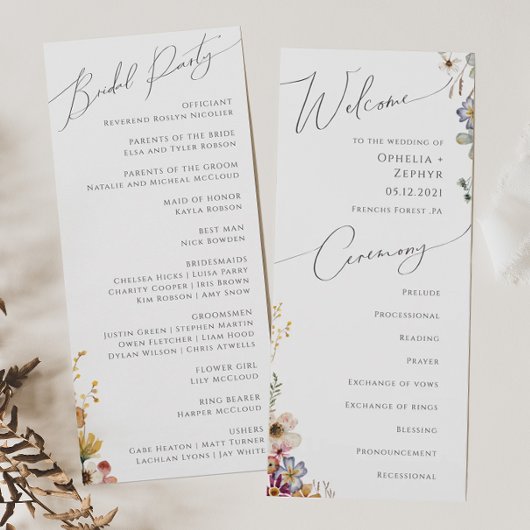 Bridal Party
OFFICIANT
REVEREND ROSLYN NICOLIER
PARENTS OF THE BRIDE
ELSA AND TYLER ROBSON
PARENTS OF THE GROOM
NATALIE AND MICHEAL MCCLOUD
MAID OF HONOR
KAYLA ROBSON
BEST MAN
NICK BOWDEN
BRIDESMAIDS
CHELSEA HICKS | LUISA PARRY
CHARITY COOPER | IRIS BROWN
KIM ROBSON | AMY SNOW
GROOMSMEN
JUSTIN GREEN | STEPHEN MARTIN
OWEN FLETCHER | LIAM HOOD
DYLAN WILSON | CHRIS ATWELLS
FLOWER GIRL
LILY MCCLOUD
RING BEARER
HARPER MCCLOUD
USHERS
GABE HEATON | MATT TURNER
LACHLAN LYONS | JAY WHITE
Welcome
TO THE WEDDING OF
OPHELIA +
ZEPHYR
05.12.2021
FRENCHS FOREST .PA
Ceremony
PRELUDE
PROCESSIONAL
READING
PRAYER
EXCHANGE OF VOWS
EXCHANGE OF RINGS
BLESSING
PRONOUNCEMENT
RECESSIONAL